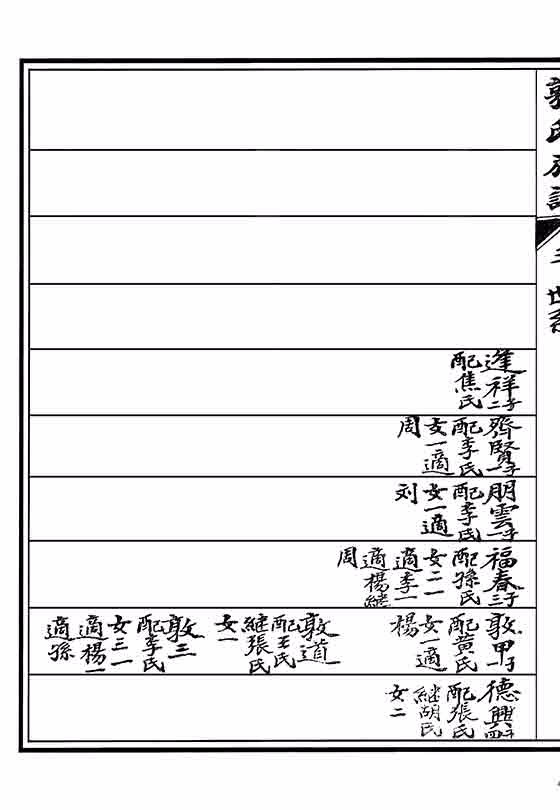 郭氏族譜
世系
逢祥二子
配焦氏
齊賢一子
配李氏
女一適
周
朋雲一子
配李氏
女一適
刘
福春三子
配孫氏
女二一
適李一
適楊繼
周
敦甲一子
配黃氏
女一適
楊
敦道
配王氏
継張氏
女一
敦三
配李氏
女三一
適楊一
適孫
德興四子
配張氏
継胡氏
女二